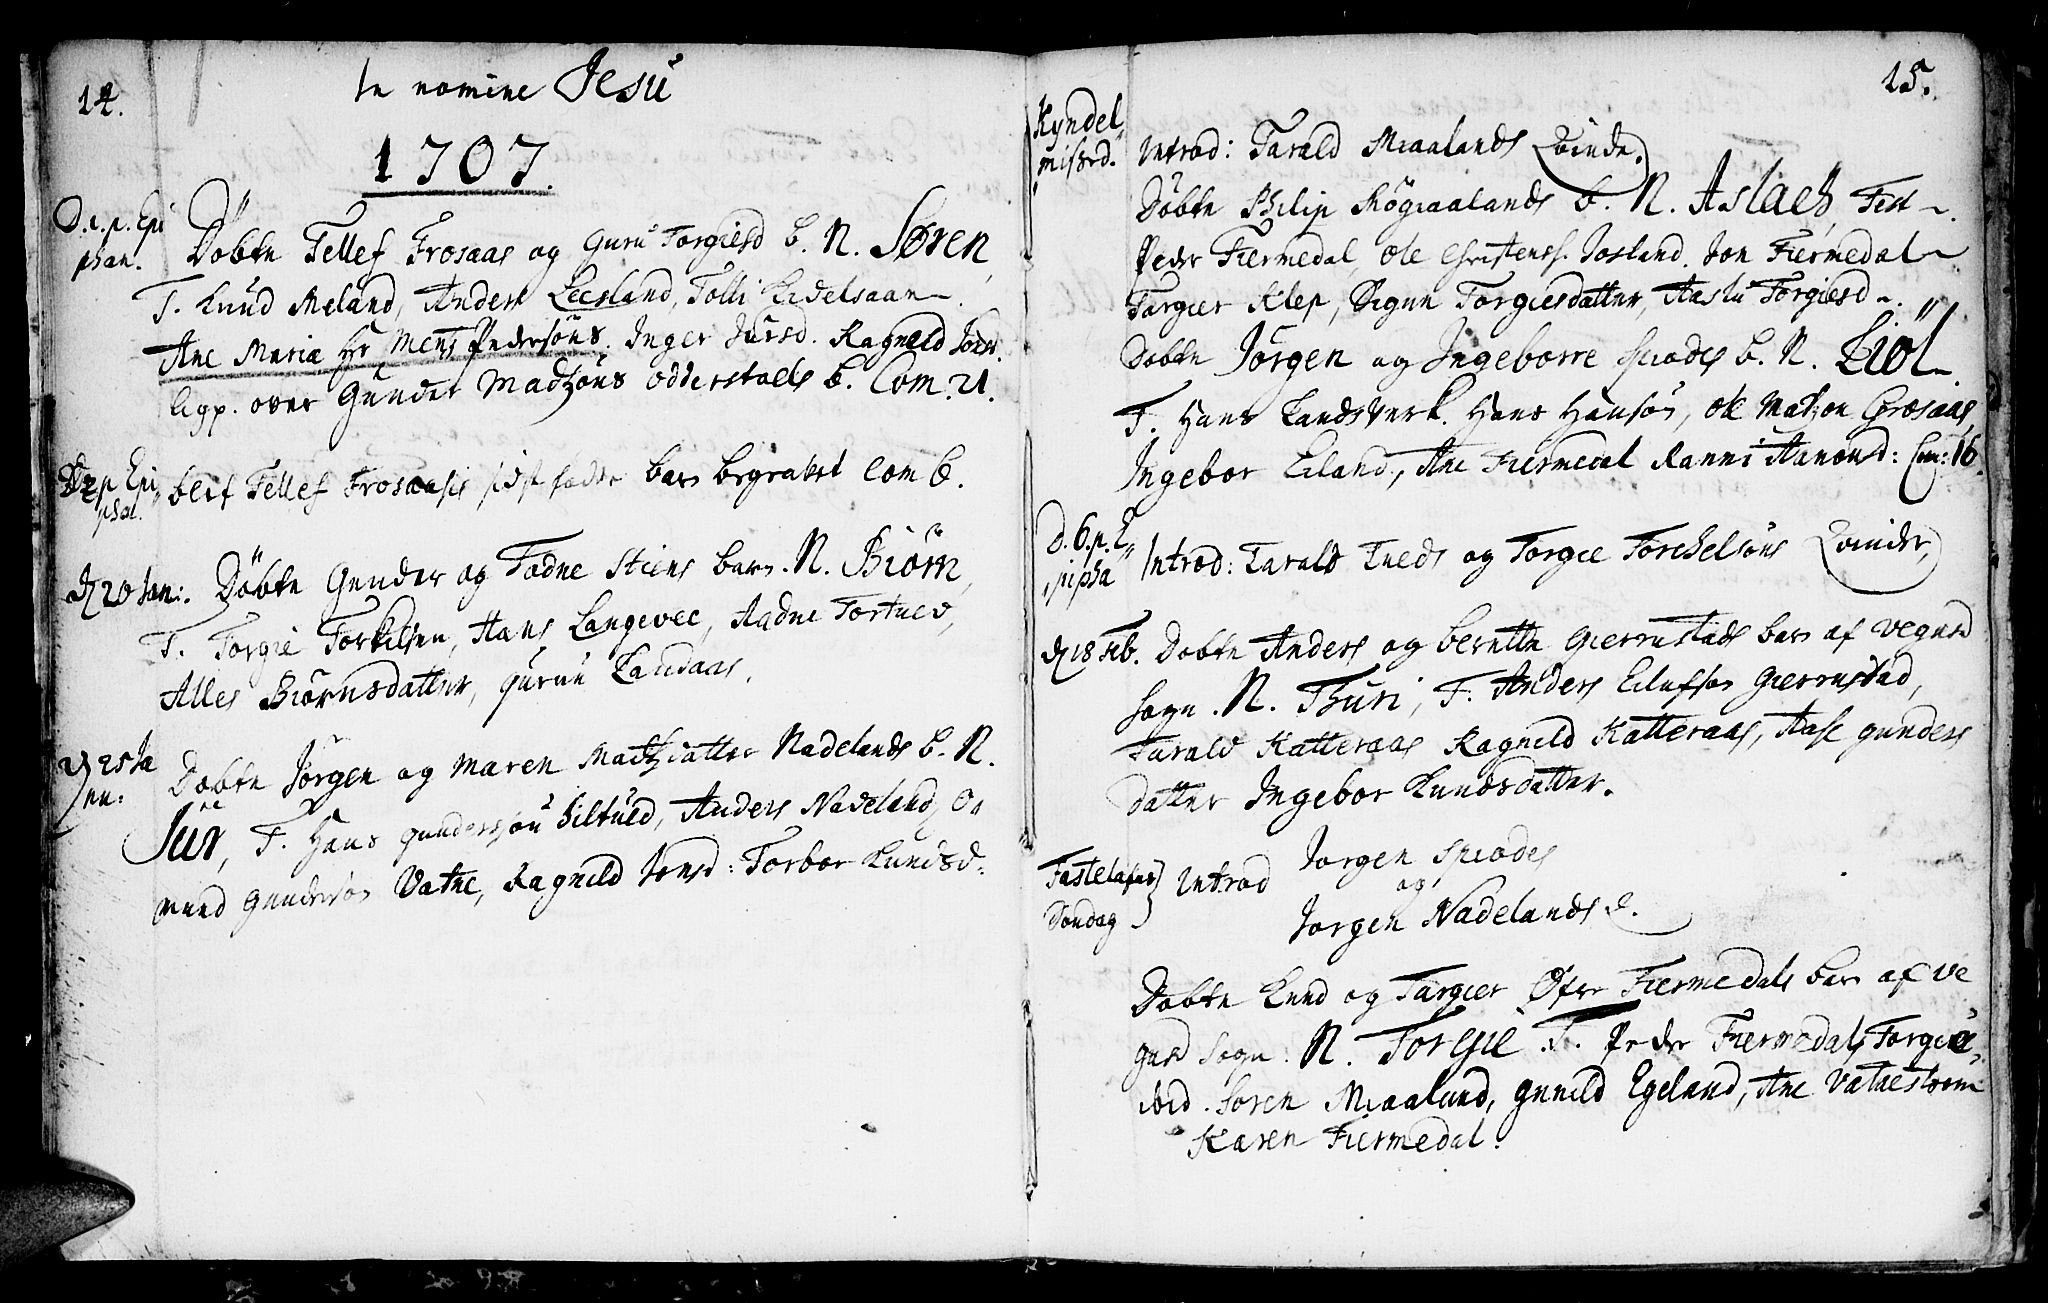 14.
In nomine Jesu
1707.
D. 1. p. Epi
phan.
Döbte Tellef Frosaas og Guru Torgiesd b. N. Søren,
T. Knud Meland, Anders Leesland, Tolli Eidelsaan.
Ane Maria Hr Mens Pedersøns. Inger Jursd. Ragneld Jonsd.
Cop. over Gunder Madzøns Odderstoels b. Com. 21.
D 2 p Epi
pha.
blef Tellef Frosaasis sidst fødde barn begravet Com 6.
d 20 Jan:
Döbte Gunder og Todne Stiens barn. N. Biørn,
T. Torgie Torkilsen, Hans Langevee, Aadne Tortuev,
Alles Biørnsdatter, Guruu Landaas.
d 25 Ja
nu:
Döbte Jörgen og Maren Madtzdatter Nadelands b. N.
Jur, F. Hans Gunderssøn Siltued, Anders Nadeland, Os
mund Gundersøn Vatne, Ragneld Jonsd: Torbor Knudsd.
15.
Kyndel
missed.
Introd: Tarald Miaalands Qvinde.
Döbte Philip Røgiaalands b. N. Aslach, Test.
Peder Fiermedal, Ole Christenss. Josland. Jon Fiermedal
Targier Klep, Signe Torgiesdatter, Aaslu Torgiesd.
Döbte Jörgen og Ingeborre Spiodes b. N. Liøl.
T. Hans Landsverk. Hans Hansøn, Ole Matzon Grosaas,
Ingebor Eiland, Ane Fiermedal Ranni Aamonsd: Com: 16.
D. 6. p. E
pipha
Introd: Tarald Tveds og Torgie Torchelsøns Qvinder,
d 18 Feb.
Döbte Anders og Berette Gierrustads barn af Vegusd
Sogn. N. Thuri, F. Anders Eilufsøn Gierrustad,
Tarald Katteraas Ragneld Katteraas, Aase Gunders
datter Ingebor Knudsdatter.
Fastelafns
Søndag
Introd
Jorgen Spiodes
og
Jorgen Nadelands Q.
Döbte Knud og Targier Øfre Fiermedals barn af Ve
gusd Sogn. N. Torgie. T. Peder Fiermedal, Torgie
ibid. Søren Miaaland, Gunild Egeland, Ane Vatnestrøm
Karen Fiermedal.